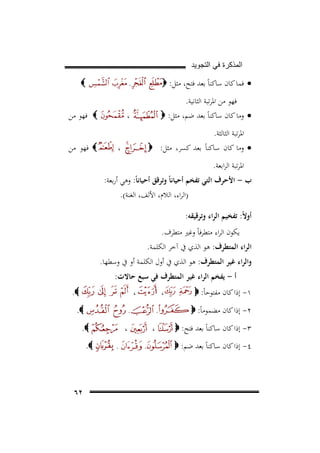 المذكرة في التجويد
• فما كان ساكناً بعد فتح، مثل: ﴿ مَطْلَعِ ٱلْفَجْرِ . مَغْرِبَ ٱلشَّمْسِ ﴾
فهو من المرتبة الثانية.
• وما كان ساكناً بعد ضم، مثل: ﴿ ٱلْمُطْمَئِنَّةُ ، مُّقْمَحُونَ ﴾ فهو من
المرتبة الثالثة.
• وما كان ساكناً بعد كسر، مثل: ﴿ إِخْرَاجٍ ، إِطْعَٰمٌ ﴾ فهو من
المرتبة الرابعة.
ب – الأحرف التي تفخم أحياناً وترقق أحياناً: وهي أربعة:
(الراء، اللام، الألف، الغنة).
أولاً: تفخيم الراء وترقيقه:
يكون الراء متطرفاً وغير متطرف.
الراء المتطرف: هو الذي في آخر الكلمة.
والراء غير المتطرف: هو الذي في أول الكلمة أو في وسطها.
أ – يفخم الراء غير المتطرف في سبع حالات:
١- إذا كان مفتوحاً: ﴿ رَحْمَةِ رَبِّكَ ، أَرَءَيْتَ ، أَلَمْ تَرَ إِلَىٰ رَبِّكَ ﴾.
٢- إذا كان مضموماً: ﴿ كَفَرُواْ . ٱلرُّعْبَ . رُوحُ ٱلْقُدُسِ ﴾.
٣- إذا كان ساكناً بعد فتح: ﴿ أَرْسَلْنَا ، أَرْبَعِينَ ، مَرْجِعُكُمْ ﴾.
٤- إذا كان ساكناً بعد ضم: ﴿ ٱلْمُرْسَلُونَ . وَقُرْءَانَ . بِقُرْبَانٍ ﴾.
٦٢